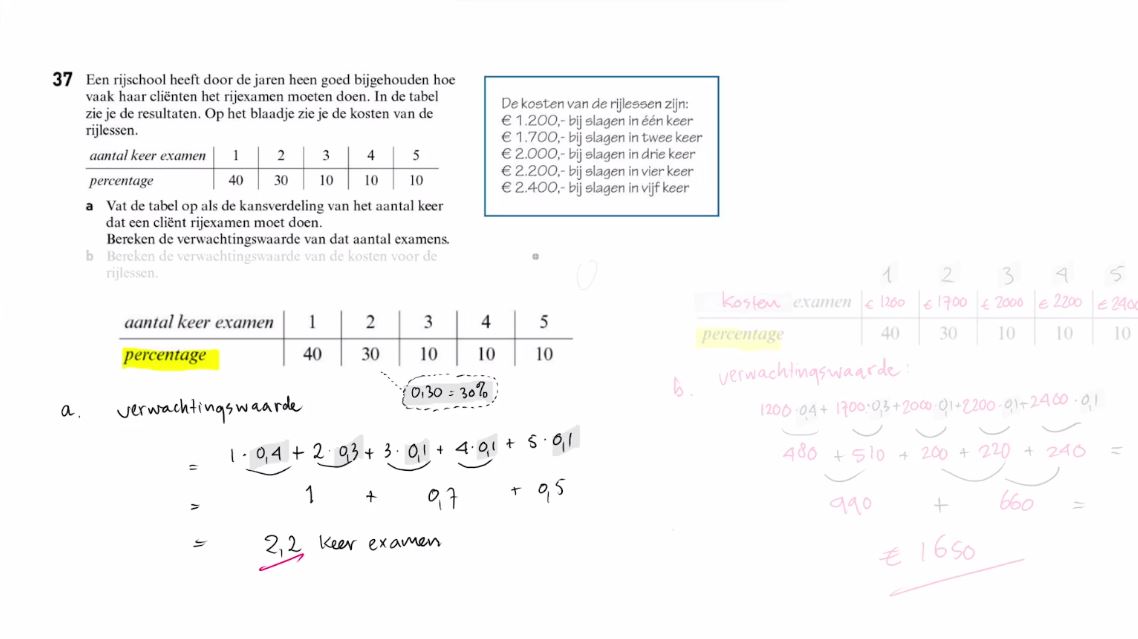 37 Een rijschool heeft door de jaren heen goed bijgehouden hoe
vaak haar cliënten het rijexamen moeten doen. In de tabel
zie je de resultaten. Op het blaadje zie je de kosten van de
rijlessen.
aantal keer examen 1 2 3 4 5
percentage 40 30 10 10 10
a Vat de tabel op als de kansverdeling van het aantal keer
dat een cliënt rijexamen moet doen.
Bereken de verwachtingswaarde van dat aantal examens.
b Bereken de verwachtingswaarde van de kosten voor de
rijlessen.
De kosten van de rijlessen zijn:
€ 1.200,- bij slagen in één keer
€ 1.700,- bij slagen in twee keer
€ 2.000,- bij slagen in drie keer
€ 2.200,- bij slagen in vier keer
€ 2.400,- bij slagen in vijf keer
aantal keer examen 1 2 3 4 5
percentage 40 30 10 10 10
0,30 = 30%
a. verwachtingswaarde
= 1 · 0,4 + 2 · 0,3 + 3 · 0,1 + 4 · 0,1 + 5 · 0,1
= 1 + 0,7 + 0,5
= 2,2 keer examen
1 2 3 4 5
kosten examen € 1200 € 1700 € 2000 € 2200 € 2400
percentage 40 30 10 10 10
b. verwachtingswaarde:
1200 · 0,4 + 1700 · 0,3 + 2000 · 0,1 + 2200 · 0,1 + 2400 · 0,1
480 + 510 + 200 + 220 + 240 =
990 + 660 =
€ 1650